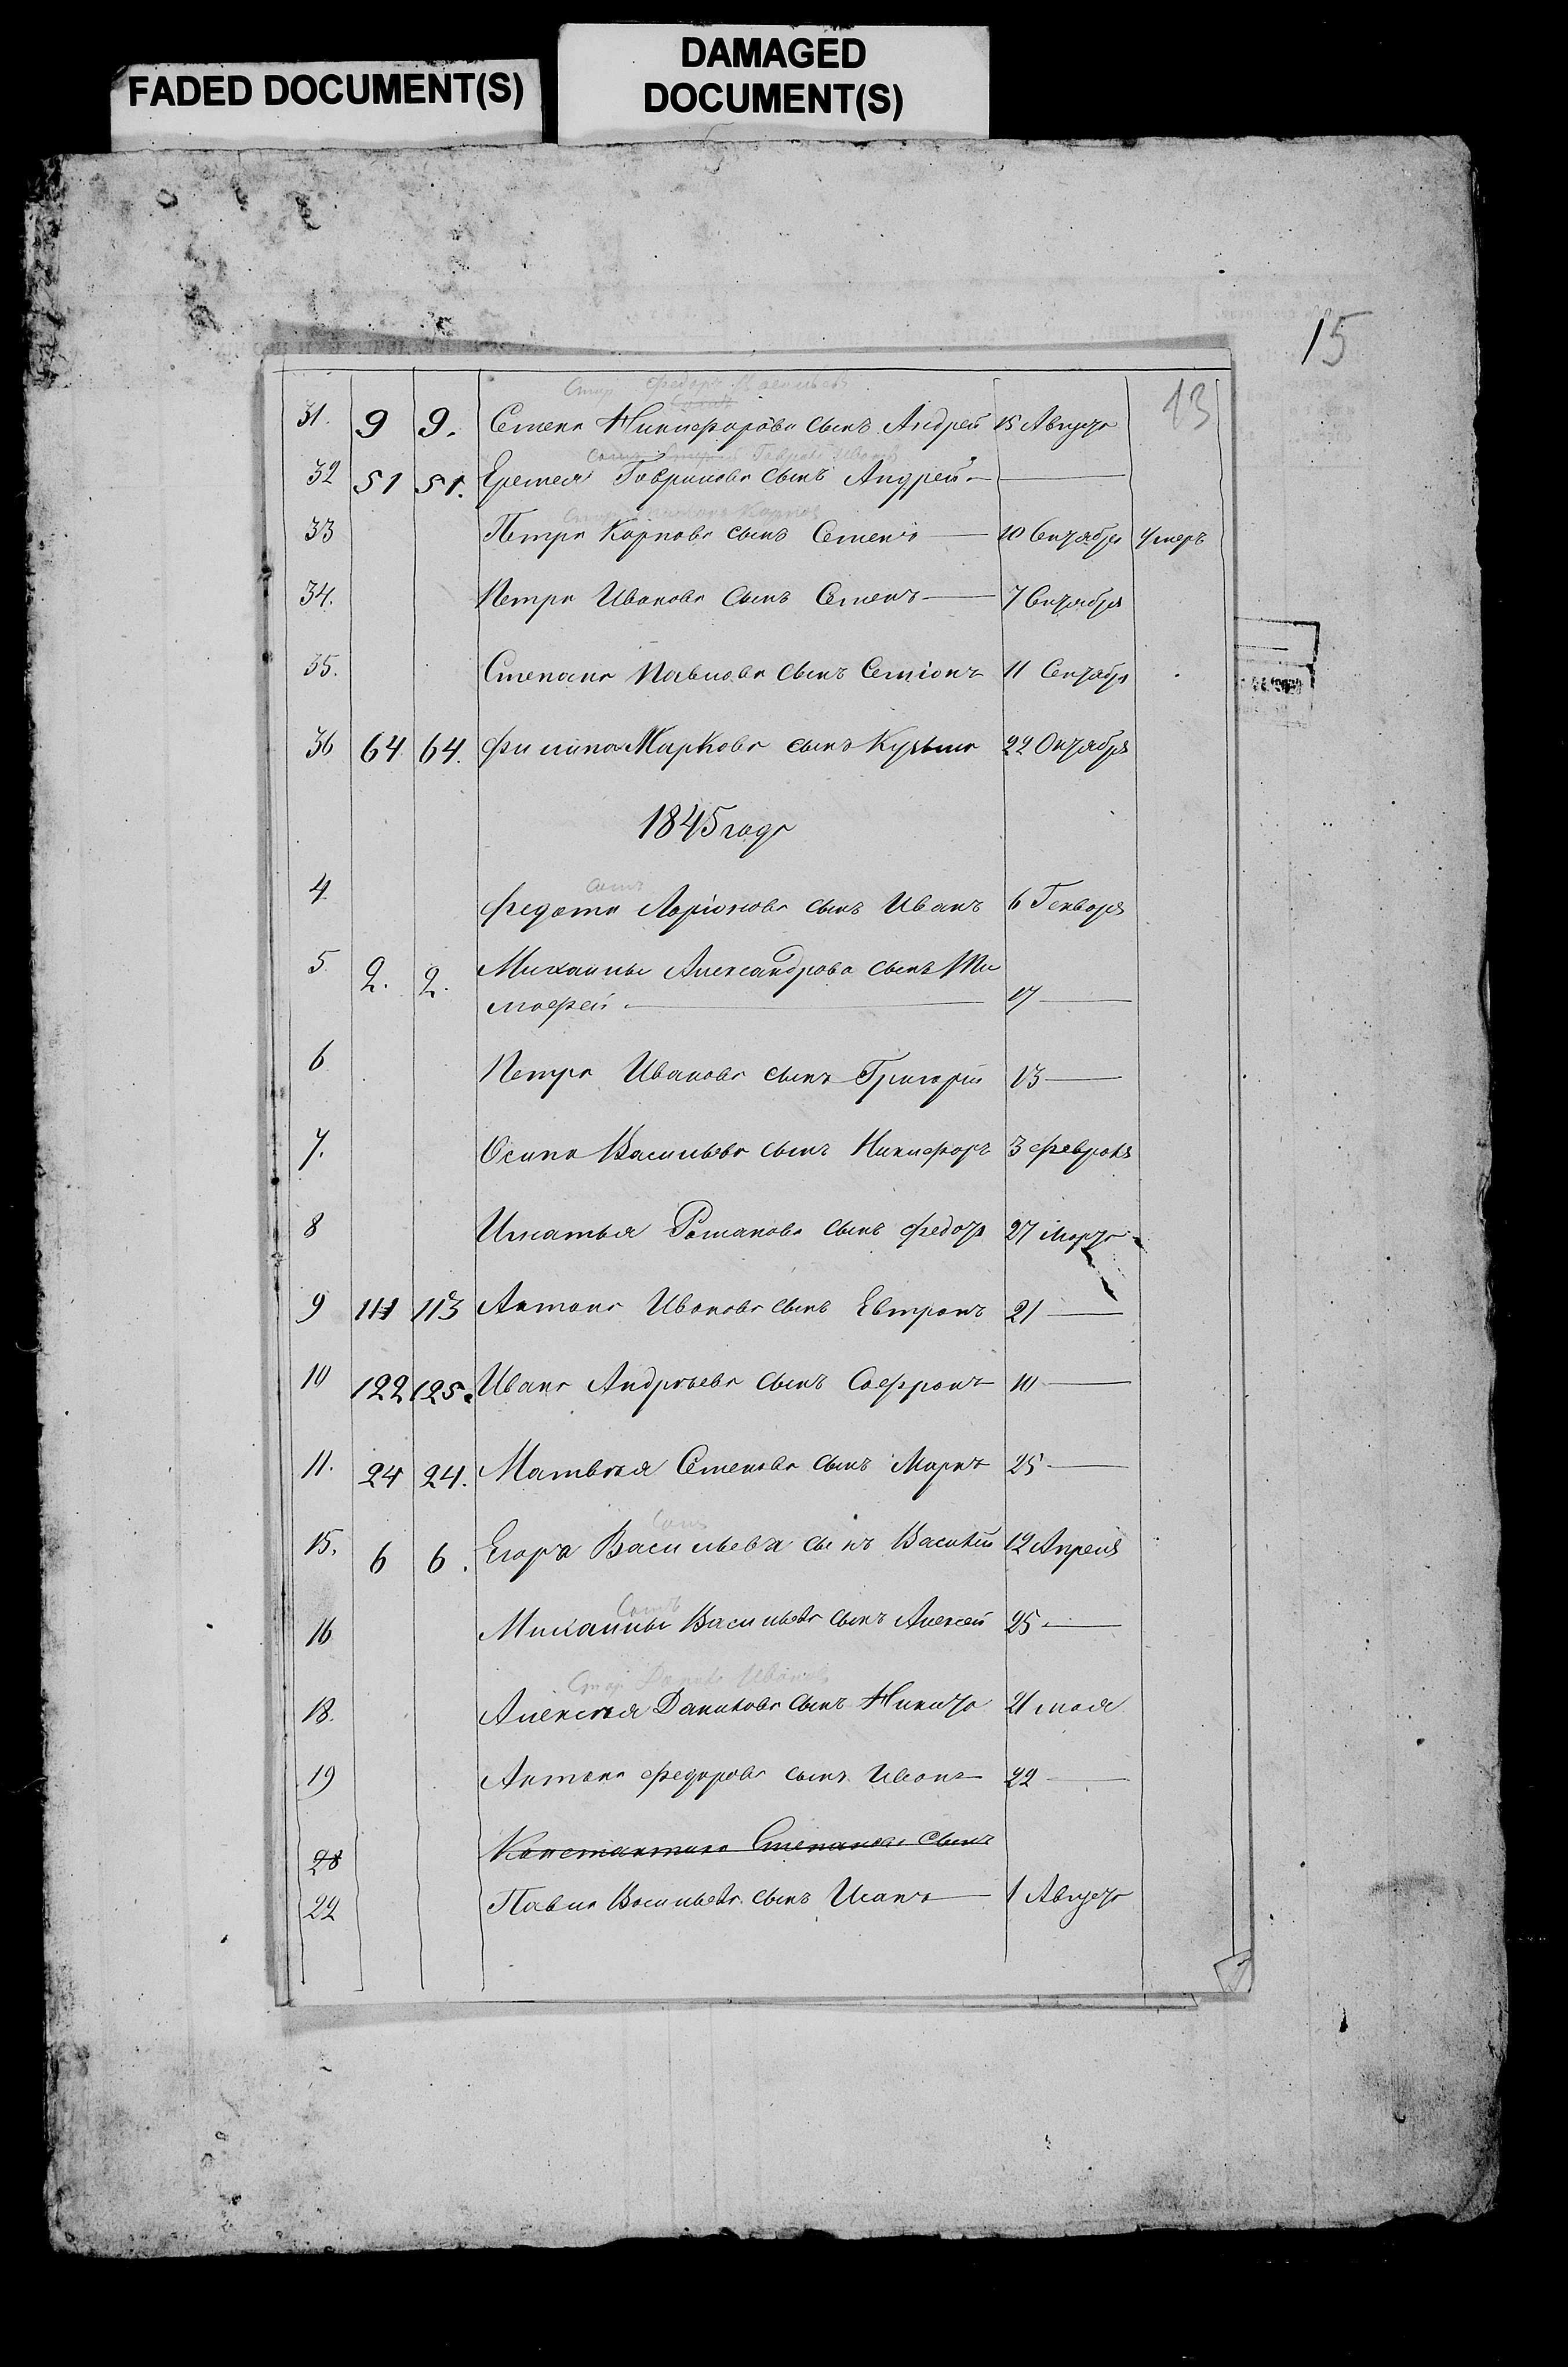 FADED DOCUMENT(S)
DAMAGED
DOCUMENT(S)
15
13
31. 9 9. Семена Никифорова сынъ Андрей 15 Августа
32 51 51. Еремея Гаврилова сынъ Андрей —
33 Петра Карпова сынъ Семенъ — 10 Сентября умеръ
34. Петра Иванова сынъ Семенъ — 7 Сентября
35. Степана Павлова сынъ Семіонъ 11 Сентября
36 64 64. Филипа Маркова сынъ Кузьма 22 Октября
1845 года
Самъ
4 Федота Ларіонова сынъ Иванъ 6 Генваря
5 2. 2. Михайлы Александрова сынъ Ти
мофей — 17 —
6 Петра Иванова сынъ Григорій 13 —
7. Осипа Васильева сынъ Никифоръ 3 Февраля
8 Игнатья Романова сынъ Федотъ 27 Марта
9 111 113 Антона Иванова сынъ Евтропъ 21 —
10 122 125. Ивана Андреева сынъ Софронъ 10 —
11. 24 24. Матвея Семенова сынъ Маркъ 25 —
Самъ
15. 6 6. Егора Васильева сынъ Василій 12 Апреля
Самъ
16 Михайлы Васильева сынъ Алексей 25 —
18. Алексея Данилова сынъ Никита 21 мая
19 Антона Федорова сынъ Иванъ 22 —
28 Константина Степанова сынъ
22 Павла Васильева сынъ Исакъ — 1 Августа